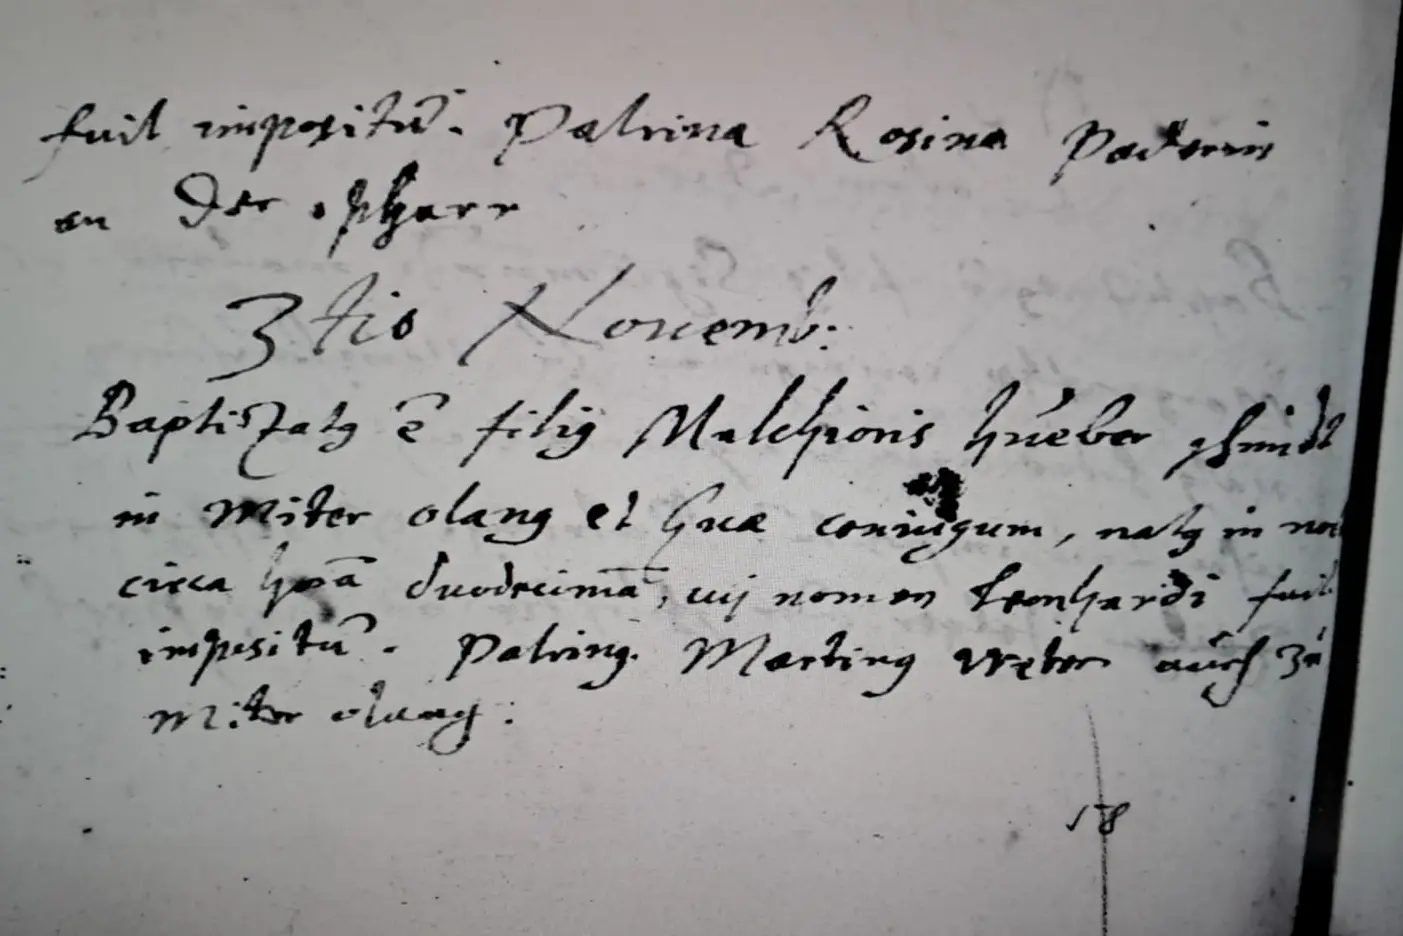 fuit impositū. Patrina Rosina Paderin
an Der Pharr
3tio Nouemb:
Baptizatus ē filius Malchioris hueber schmidt
in Miter olang et Evae coniugum, natus in noct
circa horā duodecimā, cuj nomen Leonhardi fuit
impositū. Patrinus Martinus Weber auch zu
Miter olang:
58